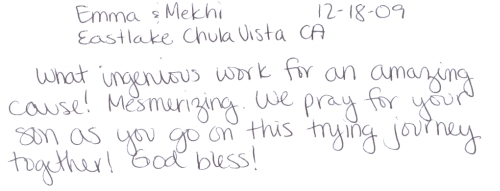 Emma & Mekhi 12-18-09
Eastlake Chula Vista CA
What ingenious work for an amazing
cause! Mesmerizing. We pray for your
son as you go on this trying journey
together! God bless!